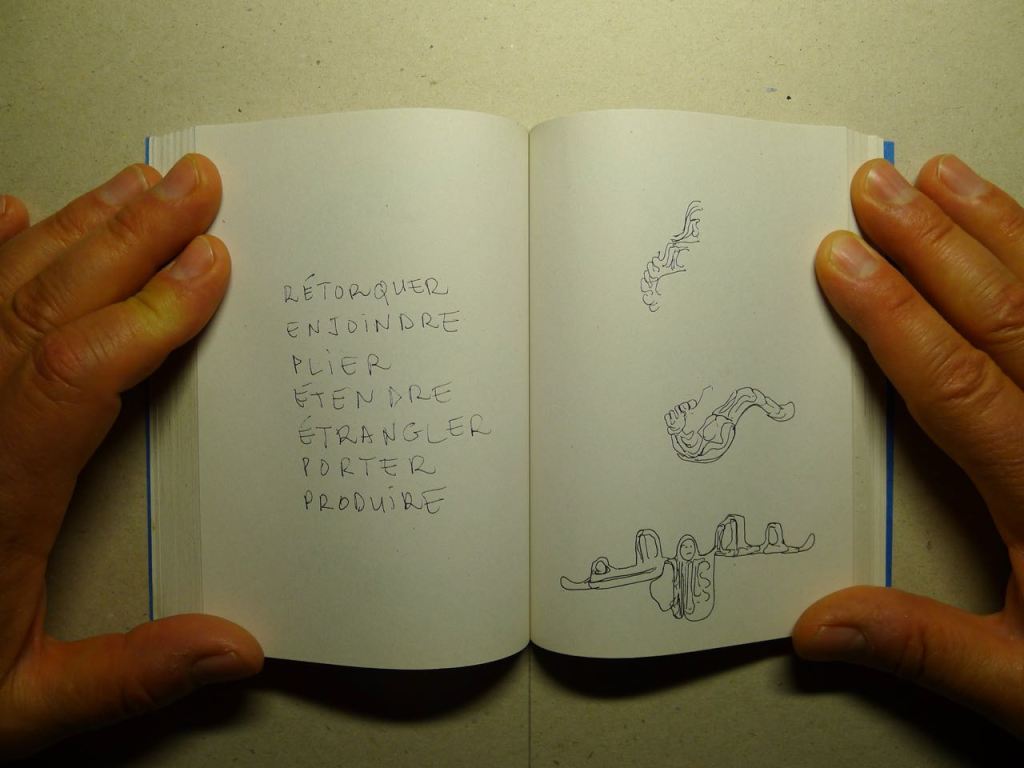 RÉTORQUER
ENJOINDRE
PLIER
ÉTENDRE
ÉTRANGLER
PORTER
PRODUIRE